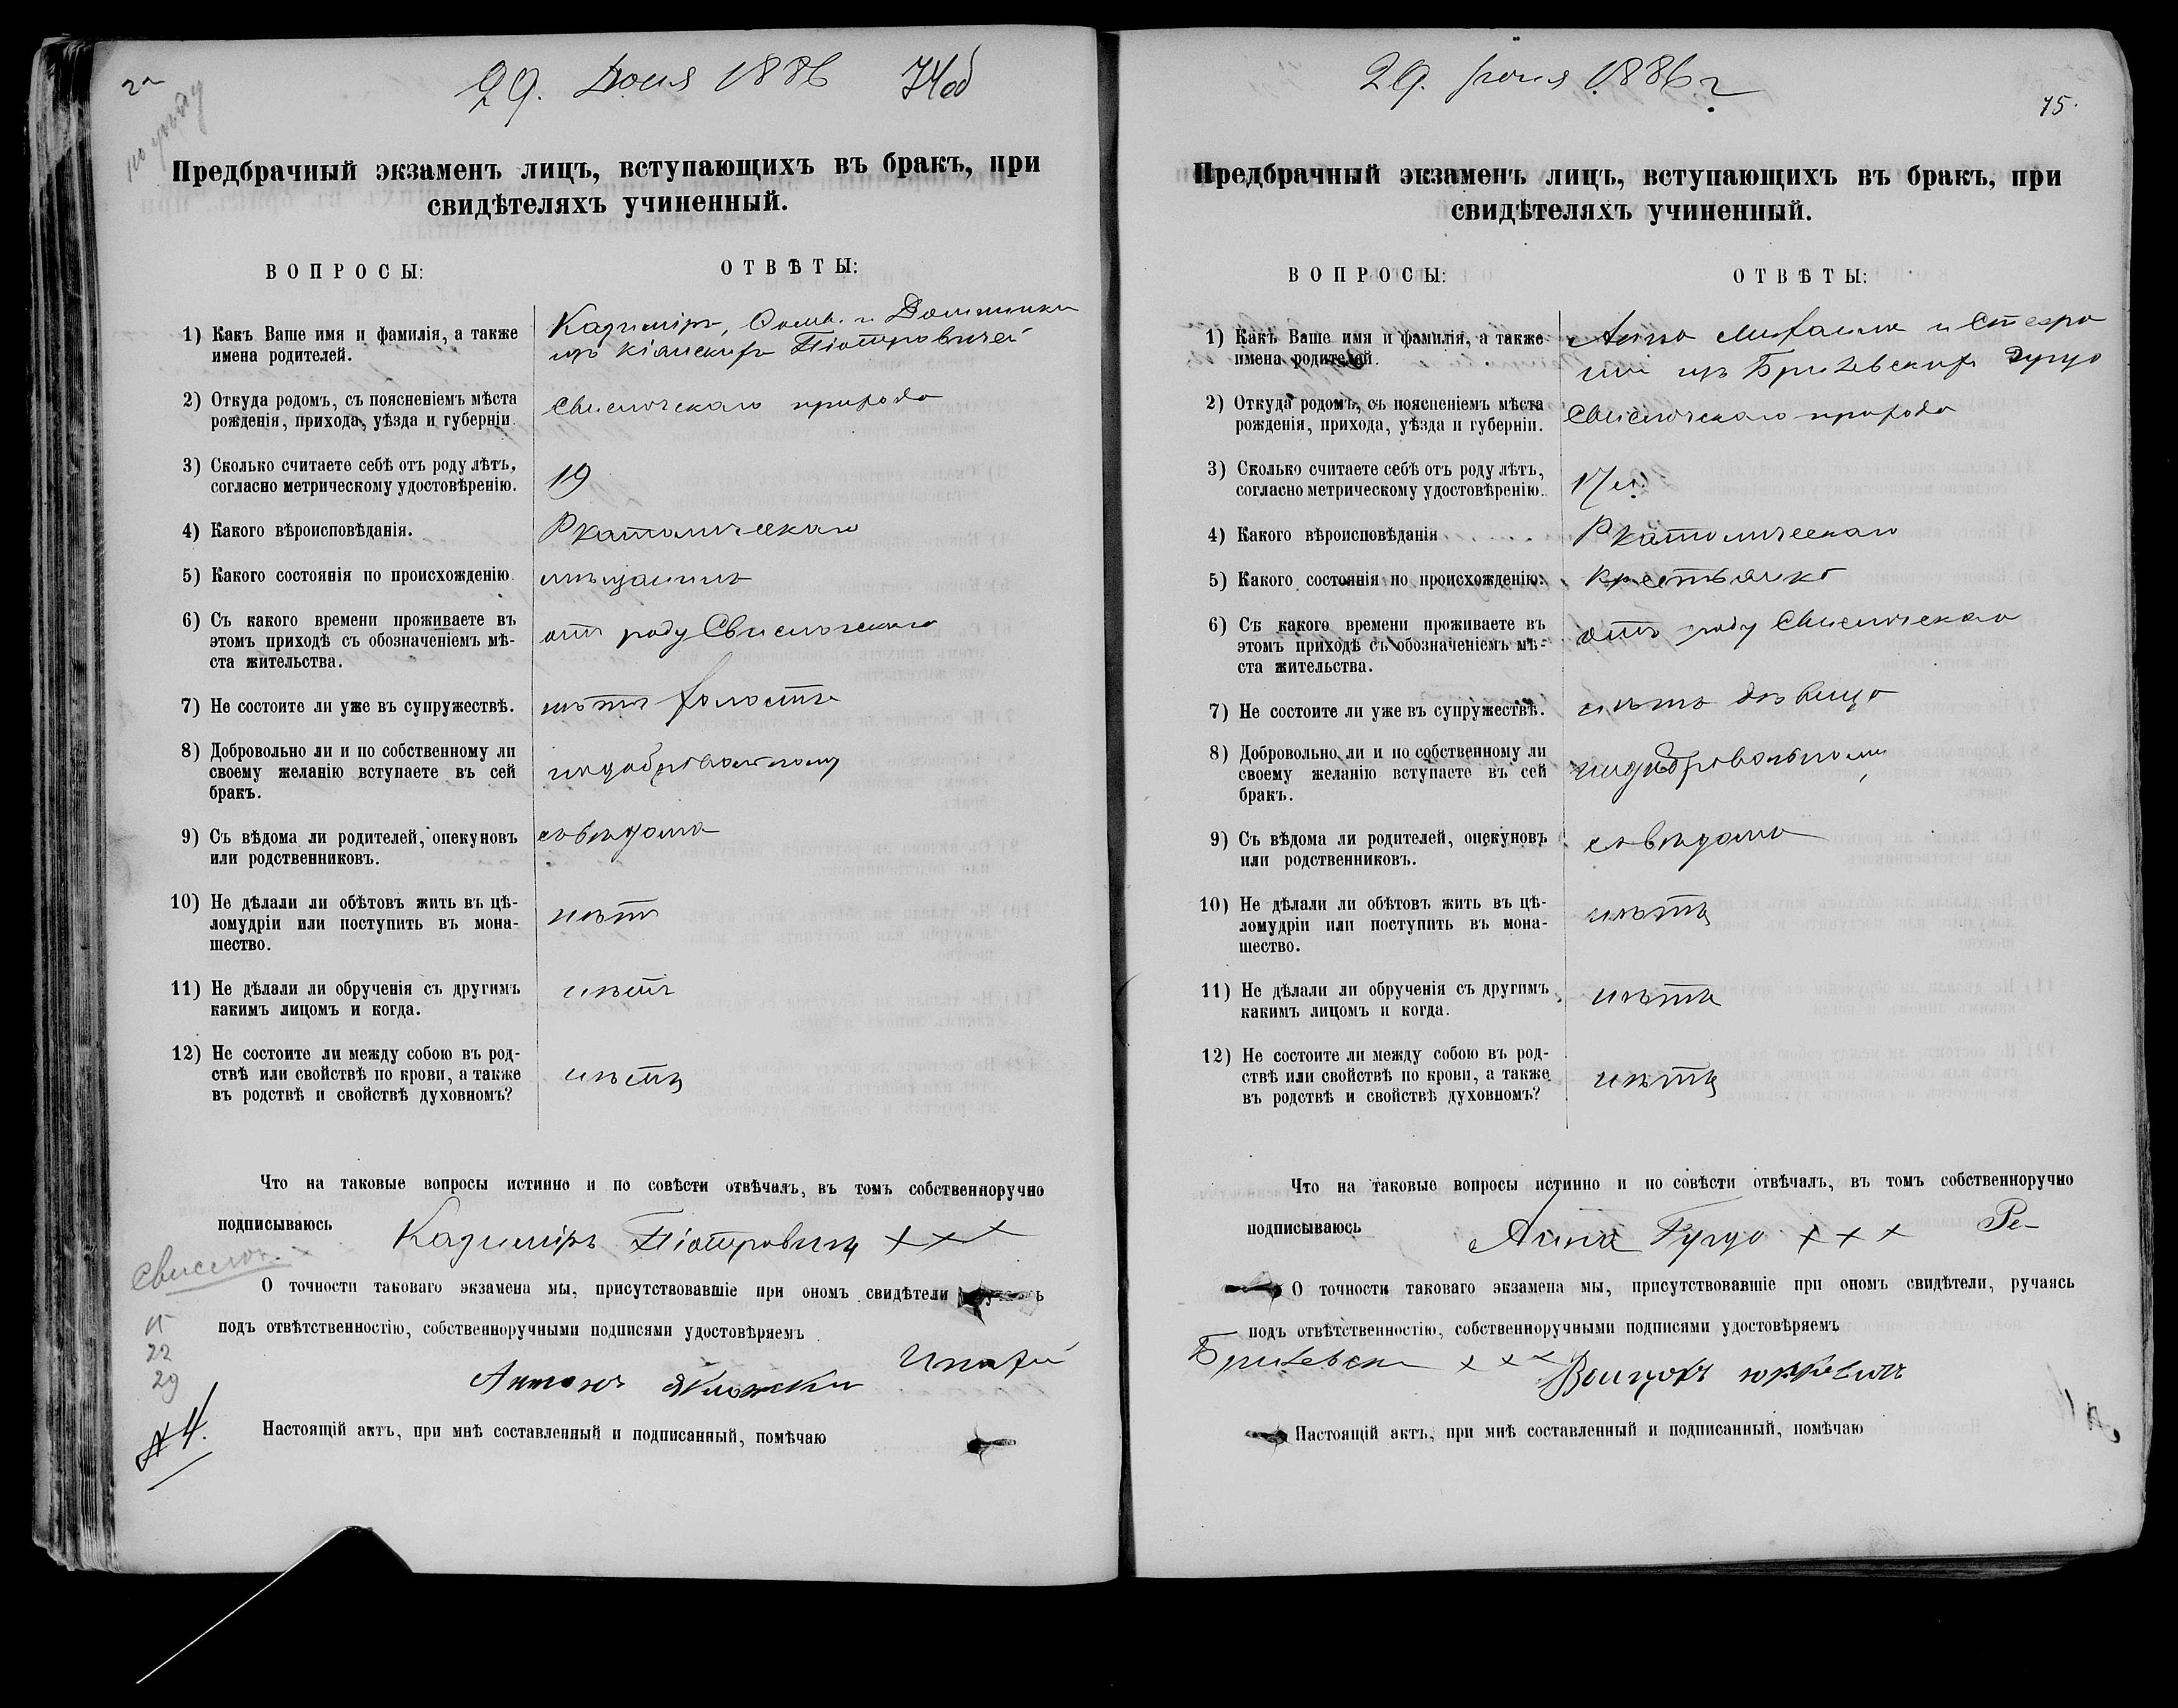 29. Іюня 1886 74об
Предбрачный экзаменъ лицъ, вступающихъ въ бракъ, при
свидѣтеляхъ учиненный.
ВОПРОСЫ: ОТВѢТЫ:
1) Какъ Ваше имя и фамилія, а также
имена родителей.
Казиміръ,
Піотровичей
2) Откуда родомъ, съ поясненіемъ мѣста
рожденія, прихода, уѣзда и губерніи.
Свислочскаго прихода
3) Сколько считаете себѣ отъ роду лѣтъ,
согласно метрическому удостовѣренію.
19
4) Какого вѣроисповѣданія.
Р католическаго
5) Какого состоянія по происхожденію.
мѣщанинъ
6) Съ какого времени проживаете въ
этомъ приходѣ съ обозначеніемъ мѣ-
ста жительства.
отъ роду Свислочскаго
7) Не состоите ли уже въ супружествѣ.
нѣтъ холостъ
8) Добровольно ли и по собственному ли
своему желанію вступаете въ сей
бракъ.
9) Съ вѣдома ли родителей, опекуновъ
или родственниковъ.
съ вѣдома
10) Не дѣлали ли обѣтовъ жить въ цѣ-
ломудріи или поступить въ мона-
шество.
нѣтъ
11) Не дѣлали ли обрученія съ другимъ
какимъ лицомъ и когда.
нѣтъ
12) Не состоите ли между собою въ род-
ствѣ или свойствѣ по крови, а также
въ родствѣ и свойствѣ духовномъ?
нѣтъ
Что на таковые вопросы истинно и по совѣсти отвѣчалъ, въ томъ собственноручно
подписываюсь Казиміръ Піотровичъ + + +
Свислоч.
О точности таковаго экзамена мы, присутствовавшіе при ономъ свидѣтели
подъ отвѣтственностію, собственноручными подписями удостовѣряемъ
15
22
29
Антонъ
Настоящій актъ, при мнѣ составленный и подписанный, помѣчаю
№ 4.
29. Іюня 1886 г
75.
Предбрачный экзаменъ лицъ, вступающихъ въ бракъ, при
свидѣтеляхъ учиненный.
ВОПРОСЫ: ОТВѢТЫ:
1) Какъ Ваше имя и фамилія, а также
имена родителей.
Анна Михаила и Стефа
ніи изъ
2) Откуда родомъ, съ поясненіемъ мѣста
рожденія, прихода, уѣзда и губерніи.
Свислочскаго прихода
3) Сколько считаете себѣ отъ роду лѣтъ,
согласно метрическому удостовѣренію.
17 л.
4) Какого вѣроисповѣданія
Р католическаго
5) Какого состоянія по происхожденію:
крестьянка
6) Съ какого времени проживаете въ
этомъ приходѣ съ обозначеніемъ мѣ-
ста жительства.
отъ роду Свислочскаго
7) Не состоите ли уже въ супружествѣ.
нѣтъ дѣвица
8) Добровольно ли и по собственному ли
своему желанію вступаете въ сей
бракъ.
9) Съ вѣдома ли родителей, опекуновъ
или родственниковъ.
съ вѣдома
10) Не дѣлали ли обѣтовъ жить въ цѣ-
ломудріи или поступить въ мона-
шество.
нѣтъ
11) Не дѣлали ли обрученія съ другимъ
какимъ лицомъ и когда.
нѣтъ
12) Не состоите ли между собою въ род-
ствѣ или свойствѣ по крови, а также
въ родствѣ и свойствѣ духовномъ?
нѣтъ
Что на таковые вопросы истинно и по совѣсти отвѣчалъ, въ томъ собственноручно
подписываюсь Анна + + +
О точности таковаго экзамена мы, присутствовавшіе при ономъ свидѣтели, ручаясь
подъ отвѣтственностію, собственноручными подписями удостовѣряемъ
+ + +
Настоящій актъ, при мнѣ составленный и подписанный, помѣчаю